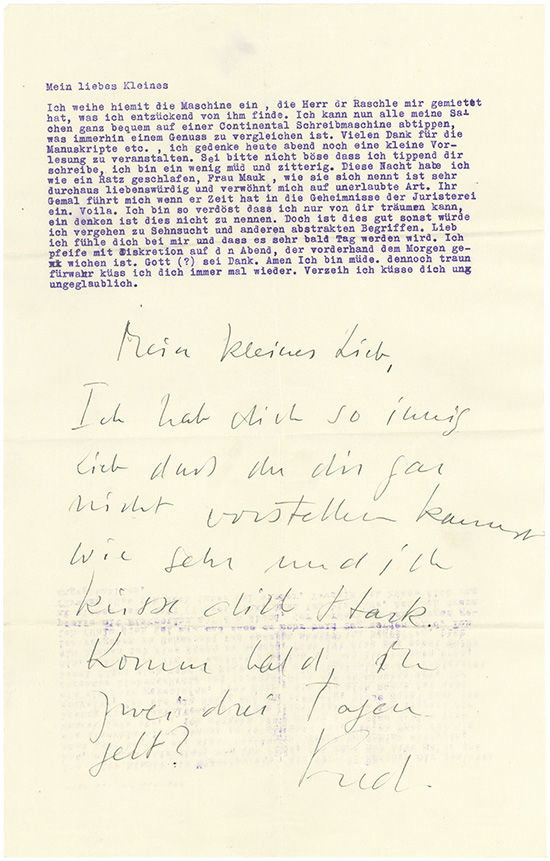 Mein liebes Kleines
Ich weihe hiemit die Maschine ein , die Herr dr Raschle mir gemietet
hat, was ich entzückend von ihm finde. Ich kann nun alle meine Sa-
chen ganz bequem auf einer Continental Schreibmaschine abtippen,
was immerhin einem Genuss zu vergleichen ist. Vielen Dank für die
Manuskripte etc. , ich gedenke heute abend noch eine kleine Vor-
lesung zu veranstalten. Sei bitte nicht böse dass ich tippend dir
schreibe, ich bin ein wenig müd und zitterig. Diese Nacht habe ich
wie ein Ratz geschlafen, Frau Mauk , wie sie sich nennt ist sehr
durchaus liebenswürdig und verwöhnt mich auf unerlaubte Art. Ihr
Gemal führt mich wenn er Zeit hat in die Geheimnisse der Juristerei
ein. Voila. Ich bin so verdöst dass ich nur von dir träumen kann,
ein denken ist dies nicht zu nennen. Doch ist dies gut sonst würde
ich vergehen zu Sehnsucht und anderen abstrakten Begriffen. Lieb
ich fühle dich bei mir und dass es sehr bald Tag werden wird. Ich
pfeife mit Diskretion auf d n Abend, der vorderhand dem Morgen ge-
wichen ist. Gott (?) sei Dank. Amen Ich bin müde. dennoch traun
fürwahr küss ich dich immer mal wieder. Verzeih ich küsse dich ung
ungeglaublich.
Mein kleines Lieb,
Ich hab dich so innig
lieb dass du dir gar
nicht vorstellen kannst
wie sehr und ich
küsse dich stark.
Komm bald, in
zwei drei Tagen
gelt?
Fred.